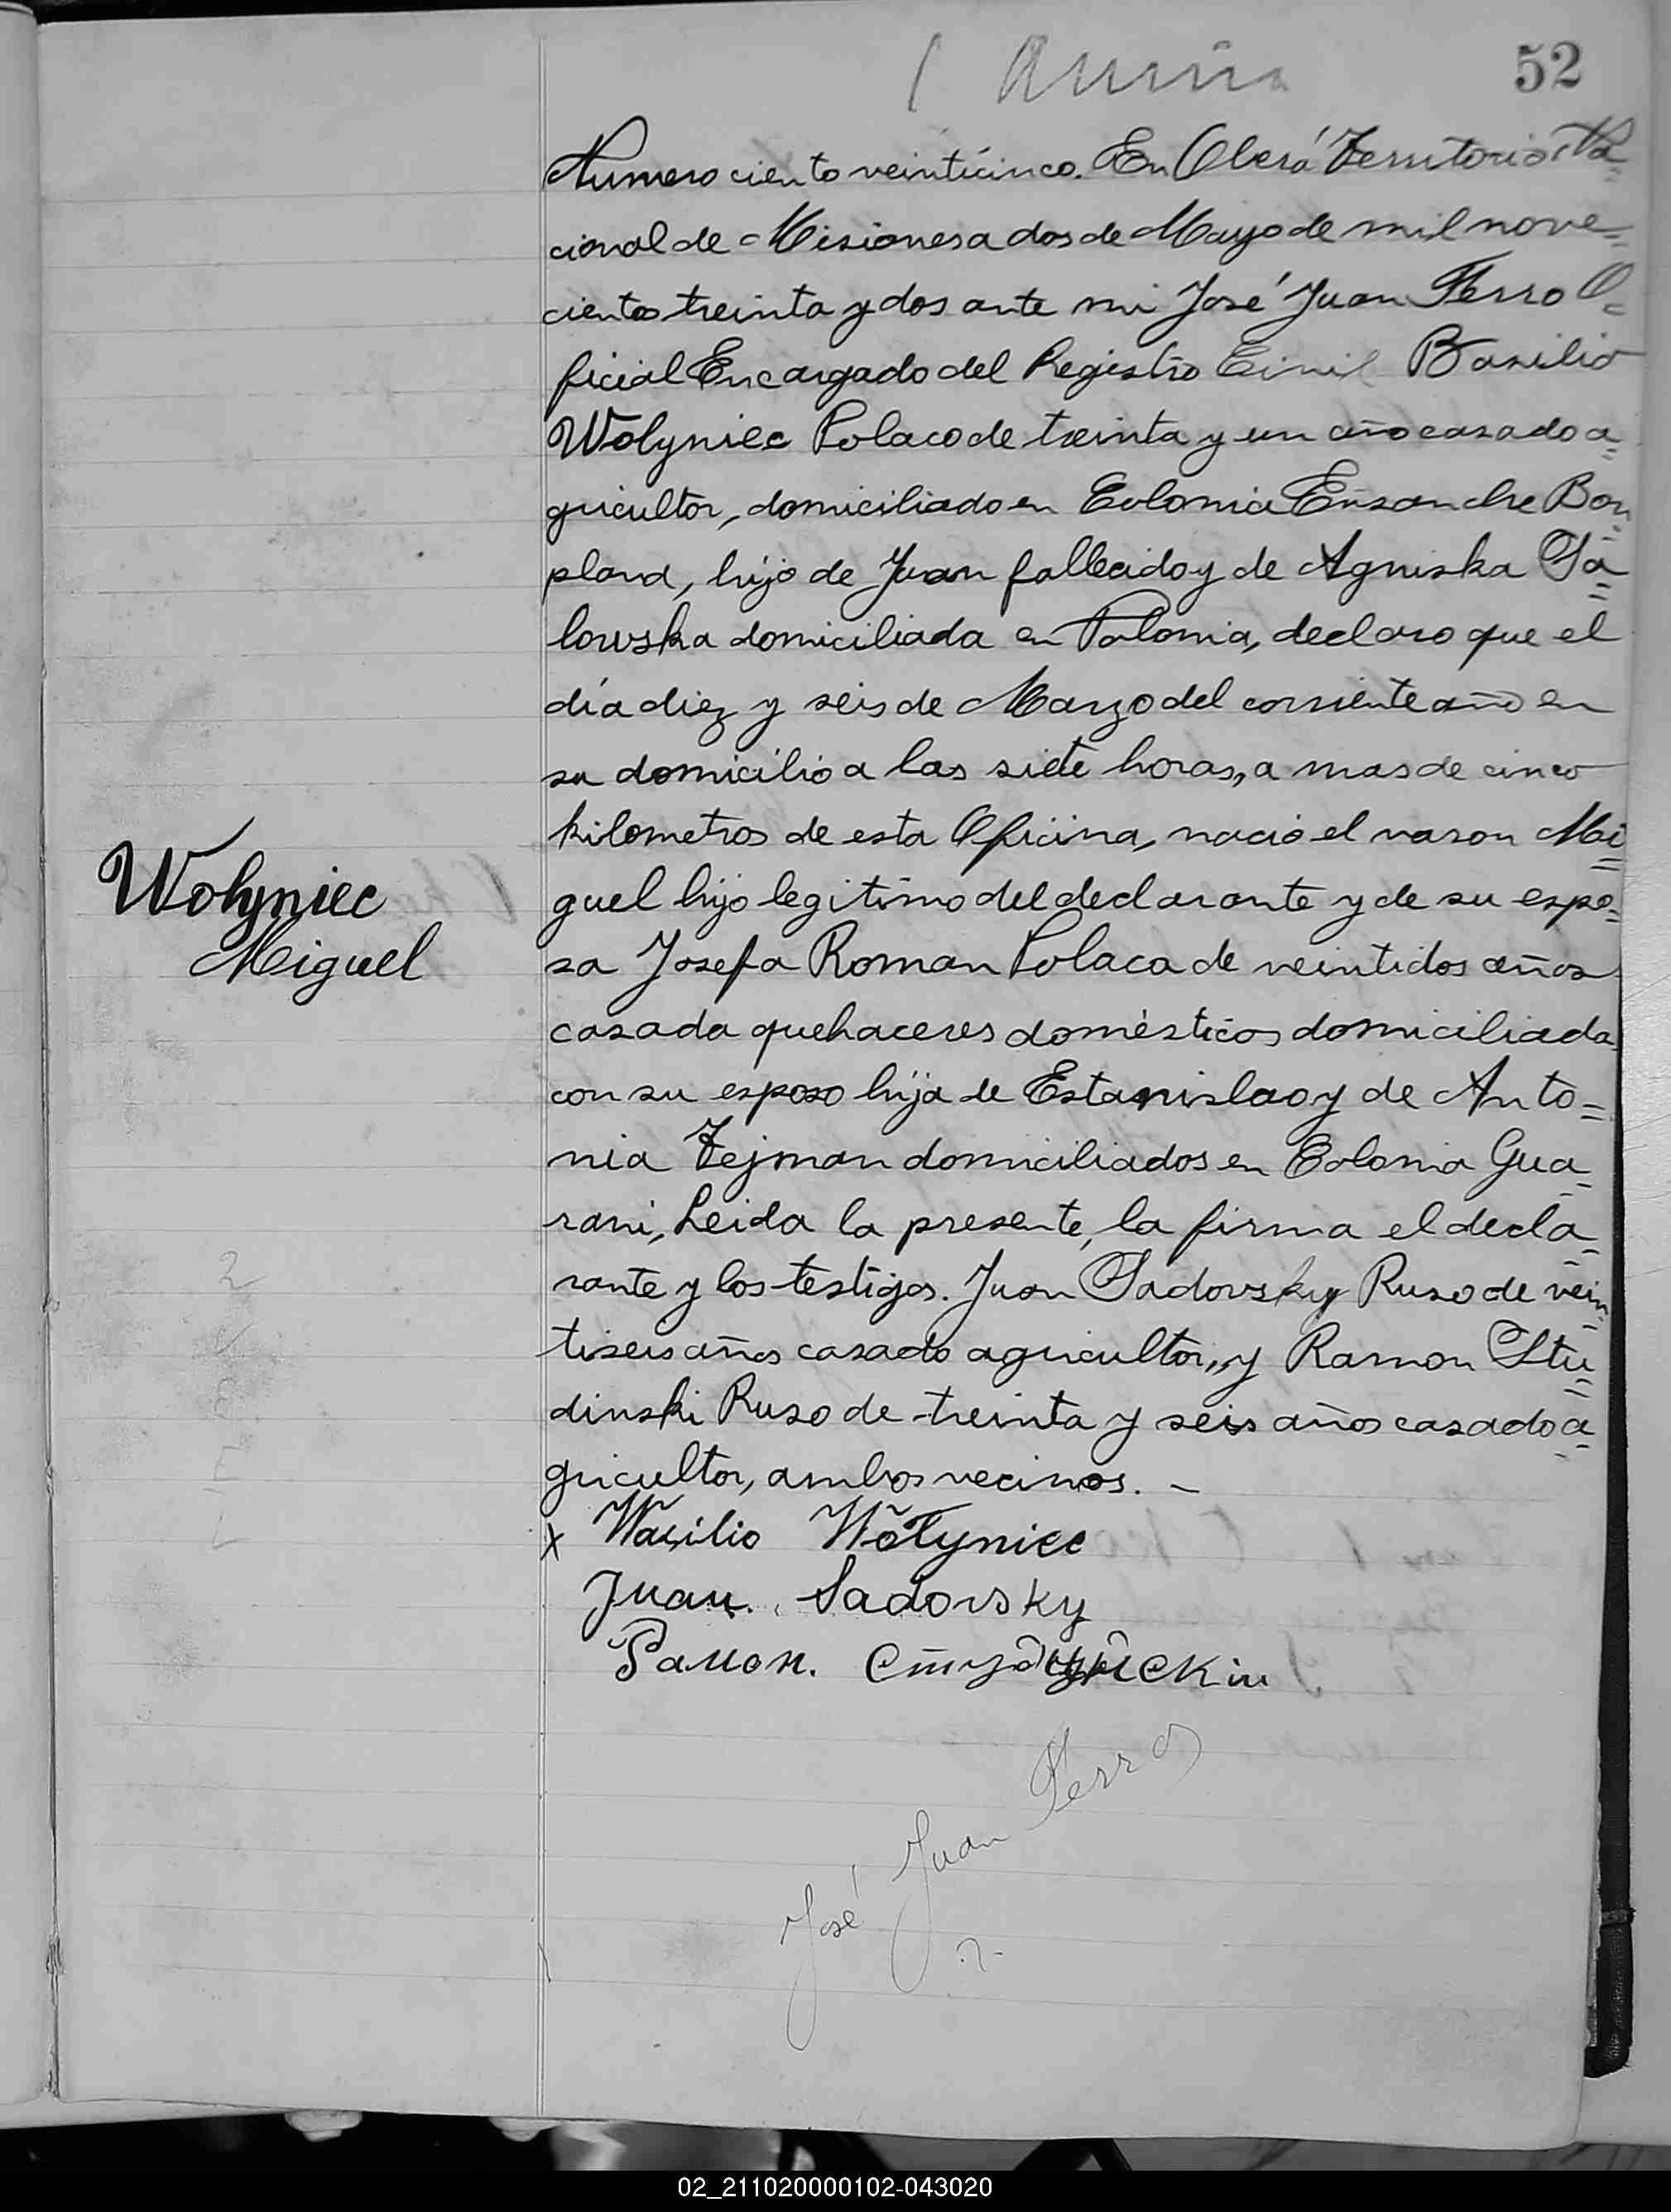 52
Numero ciento veinticinco. En Oberá Territorio Na=
cional de Misiones a dos de Mayo de mil nove=
cientos treinta y dos ante mi José Juan Ferro O=
ficial Encargado del Registro Civil Basilio
Wolyniec Polaco de treinta y un año casado a=
gricultor, domiciliado en Colonia Ensanche Bon=
pland, hijo de Juan fallecido y de Agniska Sa=
lowska domiciliada en Polonia, declaro que el
día diez y seis de Marzo del corriente año en
su domicilio a las siete horas, a mas de cinco
kilometros de esta Oficina, nació el varon Mi=
Wolyniec
guel hijo legitimo del declarante y de su espo=
Miguel
sa Josefa Roman Polaca de veintidos años
casada quehaceres domésticos domiciliada
con su esposo hija de Estanislao y de Anto=
nia Tejman domiciliados en Colonia Gua=
rani, Leida la presente, la firma el decla=
rante y los testigos. Juan Sadovsky Ruso de vein=
tiseis años casado agricultor, y Ramon Stu=
dinski Ruso de treinta y seis años casado a=
gricultor, ambos vecinos. -
x Wasilio Wołyniec
Juan. Sadovsky
Рамон.
José Juan Ferro
02_211020000102-043020